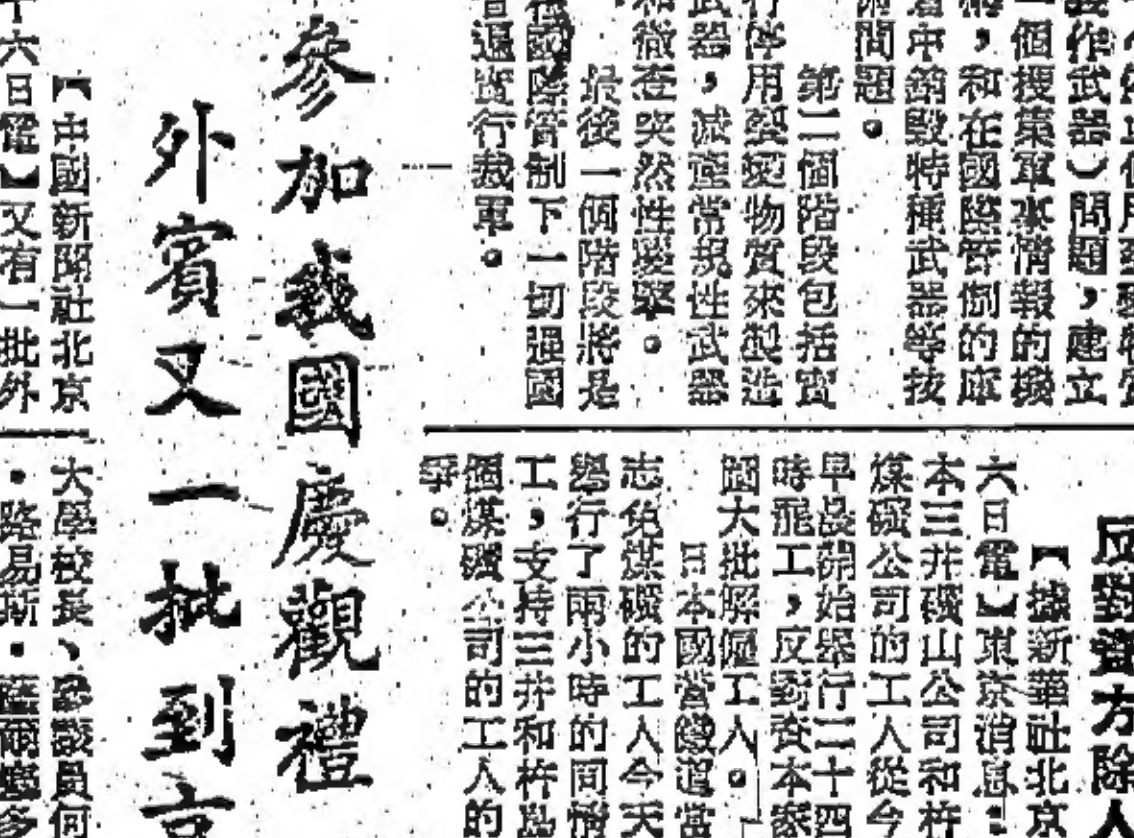 製作武器）問題，建立
一個搜集軍事情報的機
構，和在國際管制的庫
當中銷毀特種武器等技
術問題。
第二個階段包括實
行停用裂變物質來製造
武器，減產常規性武器
和徹查突然性襲擊。
最後一個階段將是
在國際管制下一切強國
普遍實行裁軍。
反對資方除人
【據新華社北京
六日電】東京消息：
本三井礦山公司和杵
煤礦公司的工人從今
早晨開始舉行二十四
時罷工，反對資本家
圖大批解僱工人。
日本國營鐵道當
志免煤礦的工人今天
舉行了兩小時的同情
工，支持三井和杵島
個煤礦公司的工人的
爭。
參加我國慶觀禮
外賓又一批到京
【中國新聞社北京
十六日電】又有一批外
大學校長、參議員何
・路易斯・薩爾多